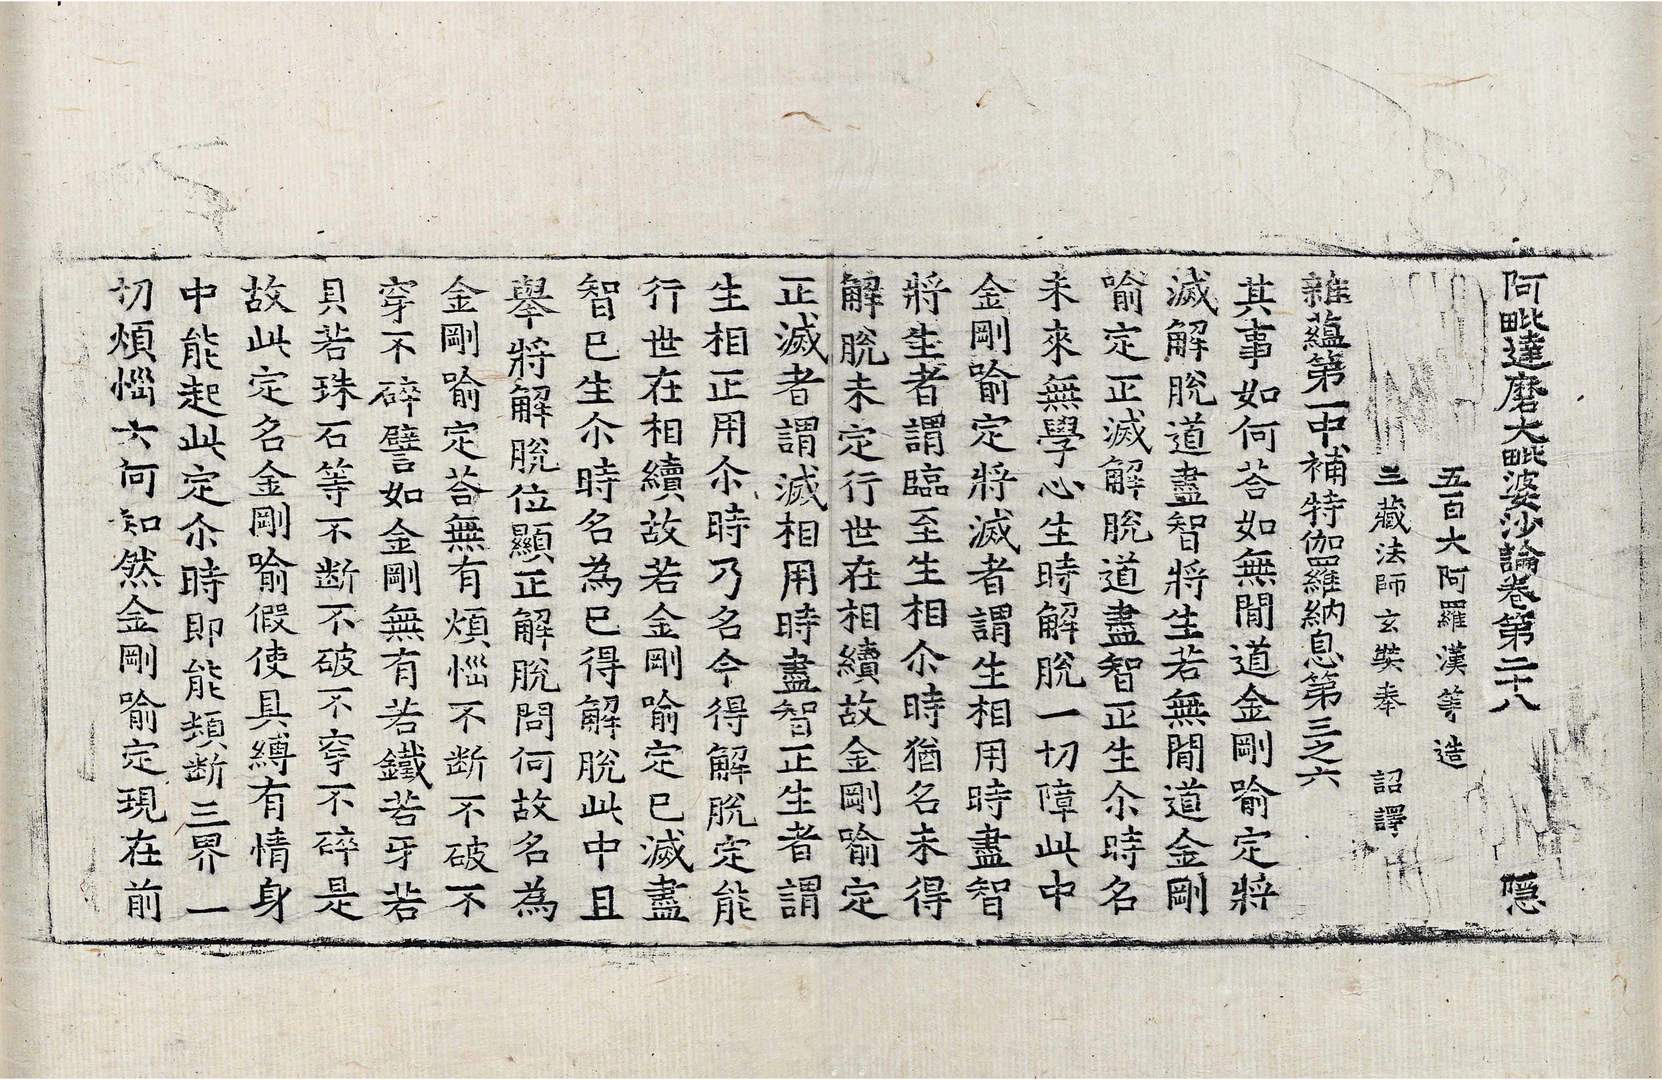 阿毗達磨大毗婆沙論卷第二十八 隱
五百大阿羅漢等造
三藏法師玄奘奉 詔譯
雜蘊第一中補特伽羅納息第三之六
其事如何荅如無間道金剛喻定將
滅解脫道盡智將生若無間道金剛
喻定正滅解脫道盡智正生尒時名
未來無學心生時解脫一切障此中
金剛喻定將滅者謂生相用時盡智
將生者謂臨至生相尒時猶名未得
解脫未定行世在相續故金剛喻定
正滅者謂滅相用時盡智正生者謂
生相正用尒時乃名今得解脫定能
行世在相續故若金剛喻定已滅盡
智已生尒時名為已得解脫此中且
舉將解脫位顯正解脫問何故名為
金剛喻定荅無有煩惱不斷不破不
穿不碎譬如金剛無有若鐵若牙若
貝若珠石等不斷不破不穿不碎是
故此定名金剛喻假使具縛有情身
中能起此定尒時即能頓斷三界一
切煩惱云何知然金剛喻定現在前